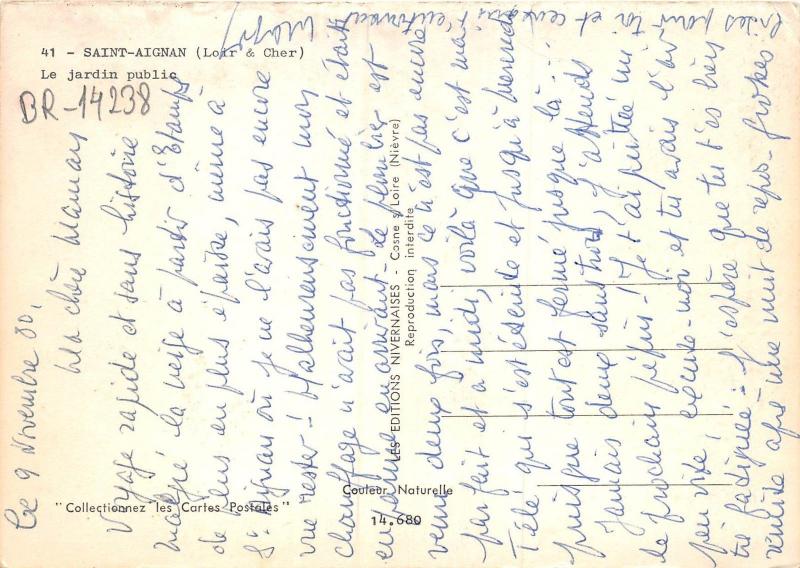 41 - SAINT-AIGNAN (Loir & Cher)
Le jardin public
BR-14238
Le 9 Novembre 80,
Ma chère Maman
Voyage rapide et sans histoire
malgré la neige à partir d'Etampes
de plus en plus éparse, même à
St Aignan où je ne l'avais pas encore
vue rester! Malheureusement mon
chauffage n'avait pas fonctionné et était
en panne en arrivant - Le plombier est
venu deux fois, mais ce n'est pas encore
parfait et à midi, voilà que c'est ma
Télé qui s'est éteinte et jusqu'à mercredi
puisque tout est fermé jusque là...
Jamais deux sans trois, j'attends
le prochain pépin! Je t'ai quittée un
peu vite! excuse-moi et tu avais l'air
très fatiguée - J'espère que tu t'es bien
remise après une nuit de repos. Grosses
bises pour toi et ceux qui t'entourent
LES EDITIONS NIVERNAISES - Cosne s/Loire (Nièvre)
Reproduction interdite
Couleur Naturelle
"Collectionnez les Cartes Postales"
14.680